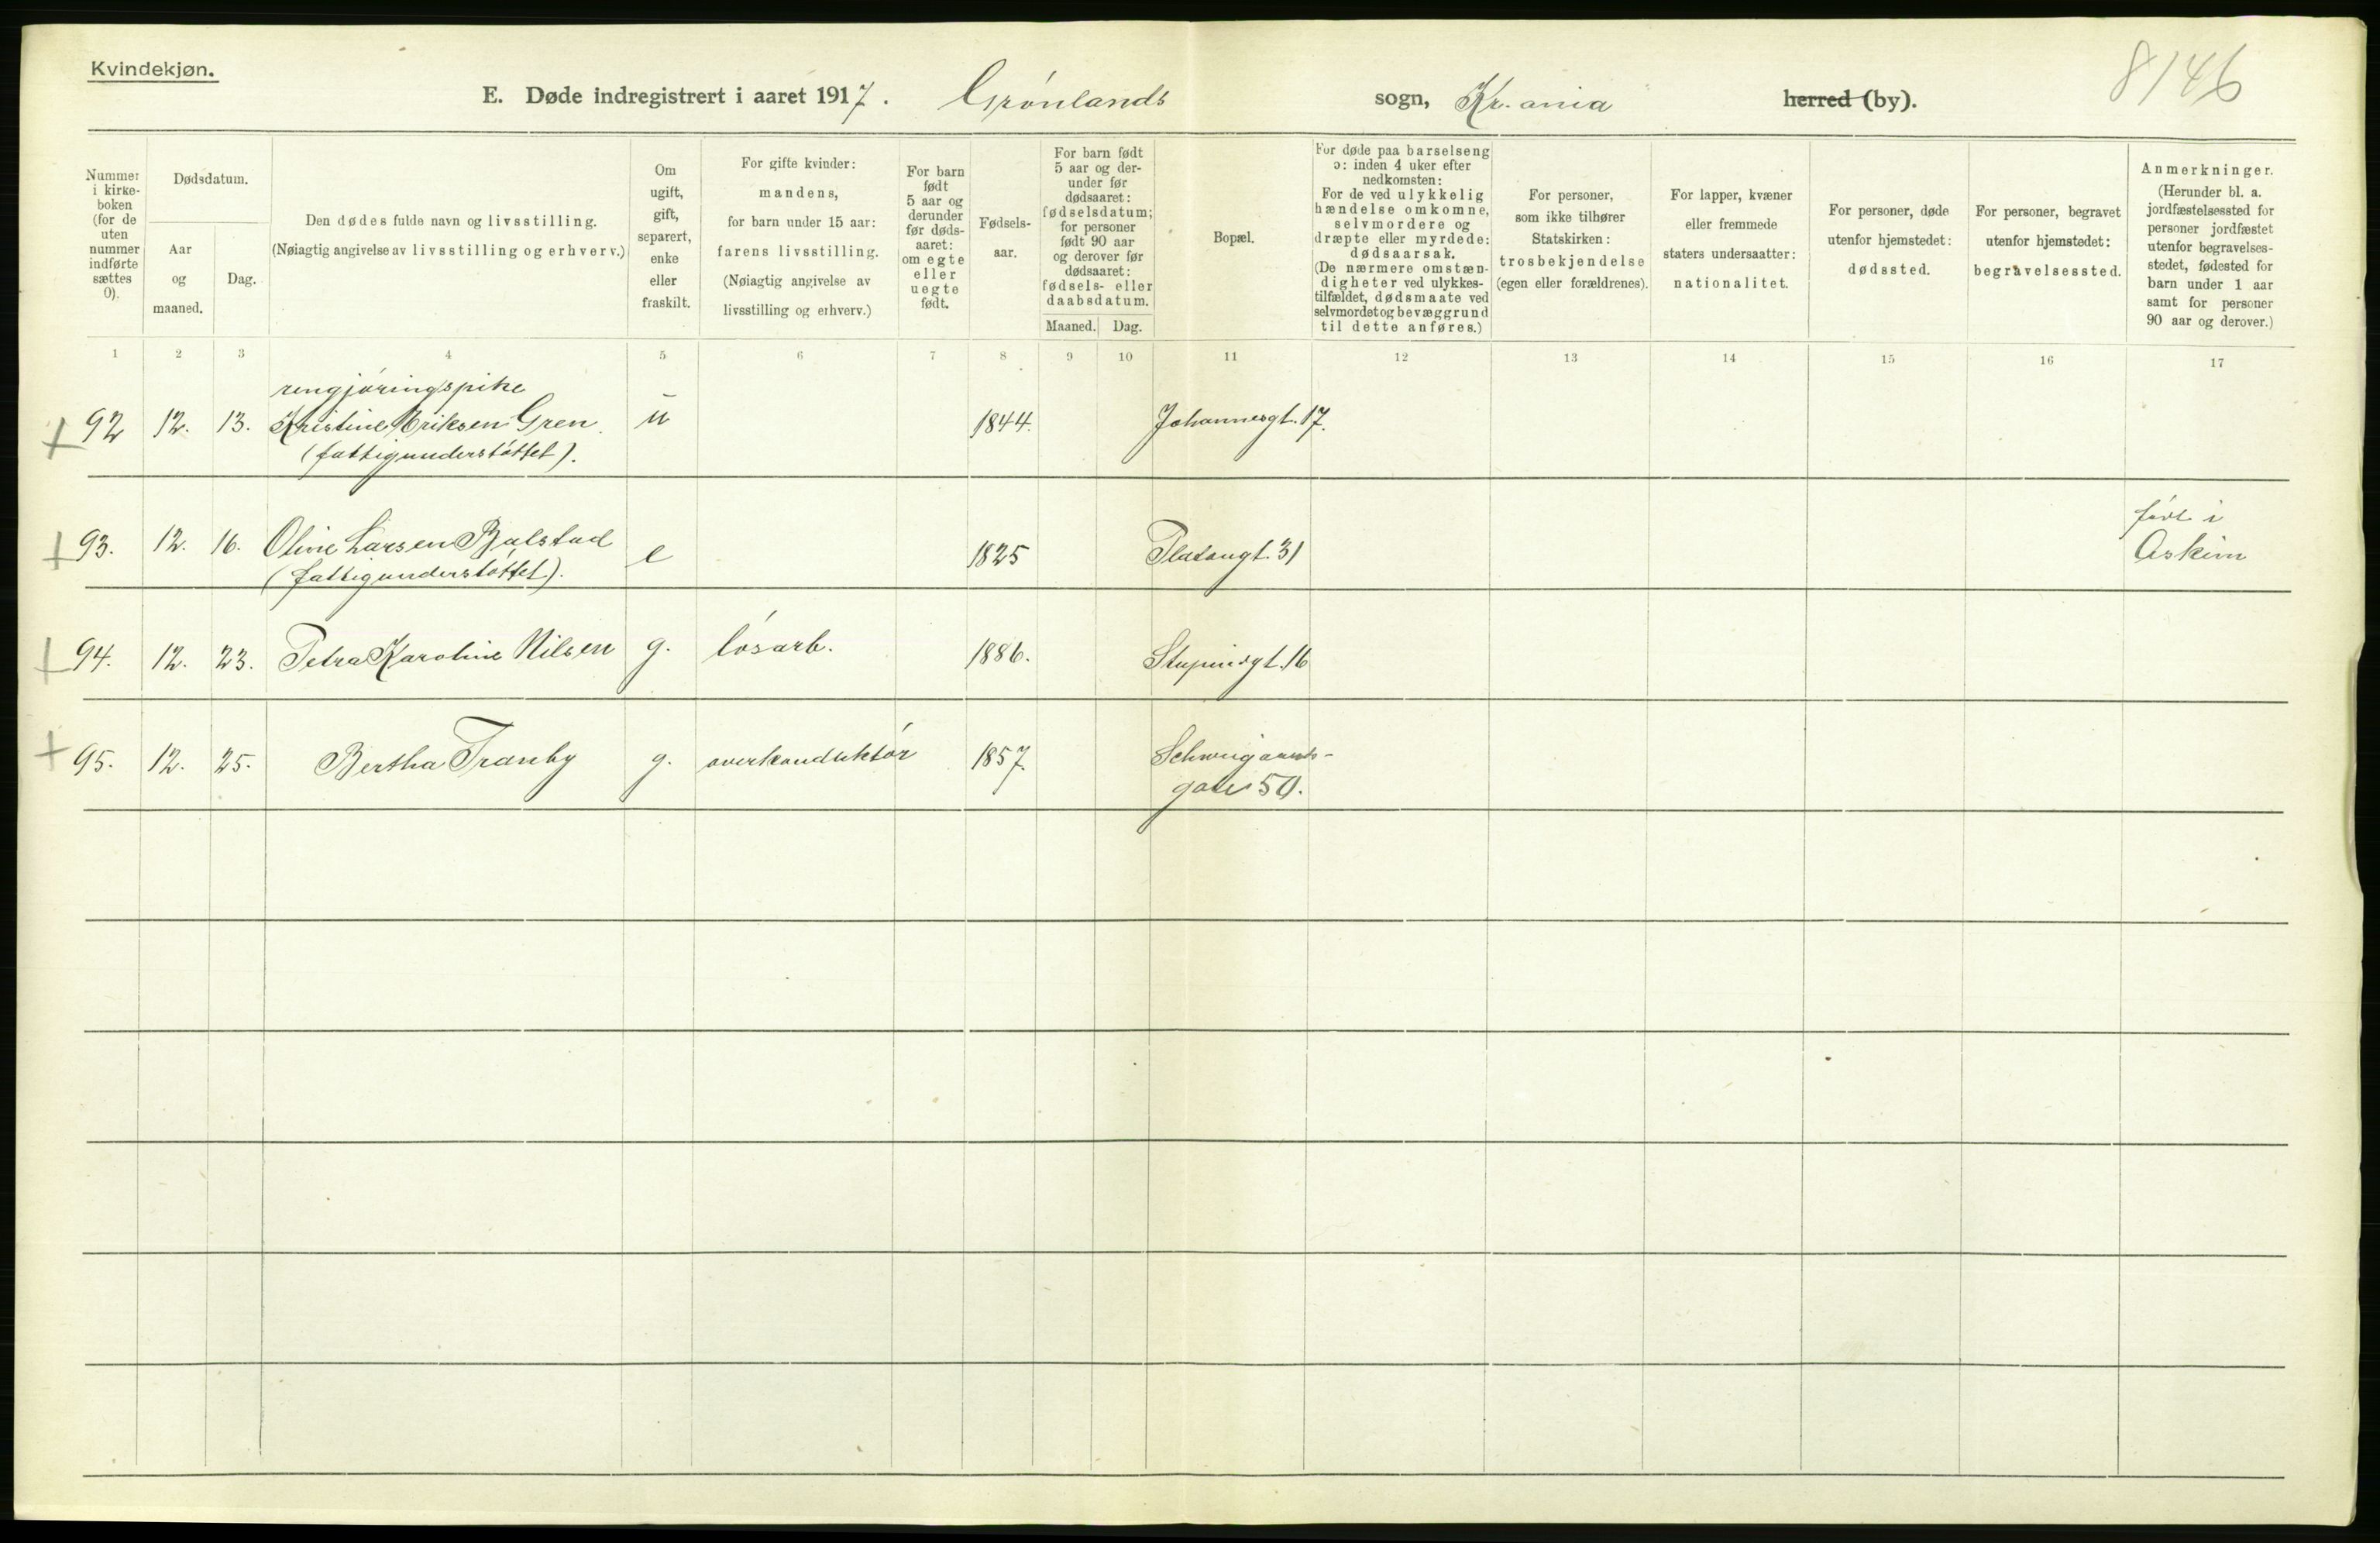 Kvindekjøn.
8146
E. Døde indregistrert i aaret 1917. Grønlands sogn, Kr.ania herred (by).
Nummer i kirke-boken (for de uten nummer indførte sættes 0).
Dødsdatum.
Aar og maaned.
Dag.
Den dødes fulde navn og livsstilling.
(Nøiagtig angivelse av livsstilling og erhverv.)
Om ugift, gift, separert, enke eller fraskilt.
For gifte kvinder: mandens, for barn under 15 aar: farens livsstilling.
(Nøiagtig angivelse av livsstilling og erhverv.)
For barn født 5 aar og derunder før døds-aaret: om egte eller uegte født.
Fødsels-aar.
For barn født 5 aar og der-under før dødsaaret: fødselsdatum; for personer født 90 aar og derover før dødsaaret: fødsels- eller daabsdatum.
Maaned. Dag.
Bopæl.
For døde paa barselseng ɔ: inden 4 uker efter nedkomsten: For de ved ulykkelig hændelse omkomne, selvmordere og dræpte eller myrdede: dødsaarsak. (De nærmere omstæn-digheter ved ulykkes-tilfældet, dødsmaate ved selvmordet og bevæggrund til dette anføres.)
For personer, som ikke tilhører Statskirken: trosbekjendelse (egen eller forældrenes).
For lapper, kvæner eller fremmede staters undersaatter: nationalitet.
For personer, døde utenfor hjemstedet: dødssted.
For personer, begravet utenfor hjemstedet: begravelsessted.
Anmerkninger. (Herunder bl. a. jordfæstelsessted for personer jordfæstet utenfor begravelses-stedet, fødested for barn under 1 aar samt for personer 90 aar og derover.)
1 2 3 4 5 6 7 8 9 10 11 12 13 14 15 16 17
rengjøringspike
92 12. 13. Kristine Eriksen Gren. u 1844. Johannesgt. 17.
(fattigunderstøttet).
født i
93. 12. 16. Oline Larsen Bulstad e 1825 Platougt. 31 Askim
(fattigunderstøttet).
94. 12. 23. Petra Karoline Nilsen g. løsarb. 1886. Stupinsgt. 16
95. 12. 25. Bertha Tranby g. overkonduktør 1857. Schweigaards-
gate 50.